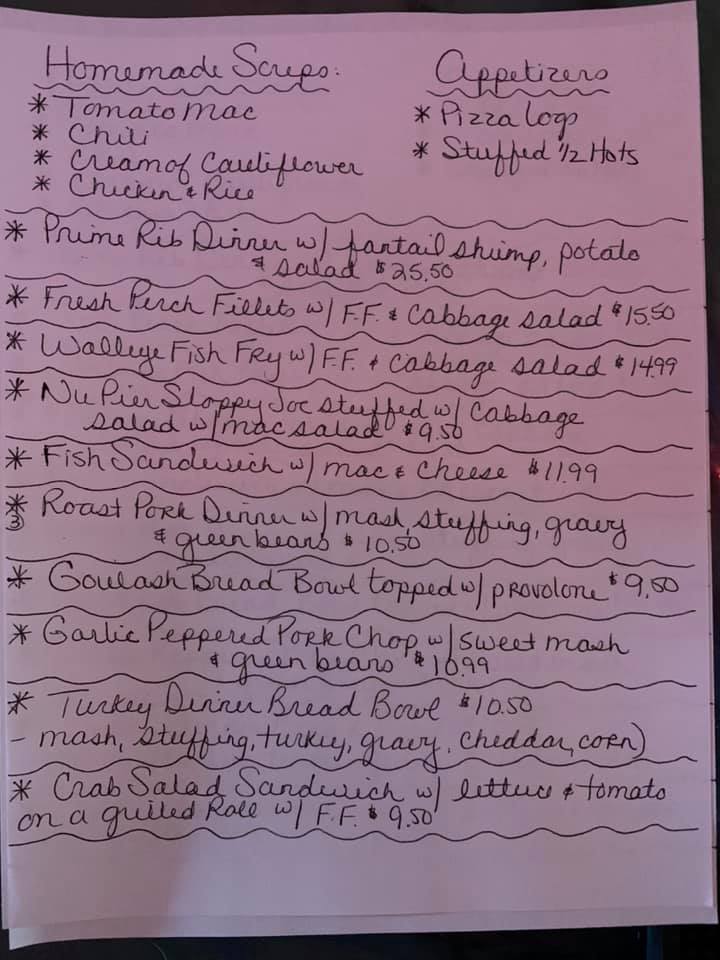 Homemade Soups:
* Tomato Mac
* Chili
* Cream of Cauliflower
* Chicken & Rice
Appetizers
* Pizza Logs
* Stuffed 1/2 Hots
* Prime Rib Dinner w/ fantail shrimp, potato
& salad $25.50
* Fresh Perch Fillets w/ F.F. & cabbage salad $15.50
* Walleye Fish Fry w/ F.F. & cabbage salad $14.99
* Nu Pier Sloppy Joe stuffed w/ cabbage
salad w/ mac salad $9.50
* Fish Sandwich w/ mac & cheese $11.99
* Roast Pork Dinner w/ mash, stuffing, gravy
③ & green beans $10.50
* Goulash Bread Bowl topped w/ provolone $9.50
* Garlic Peppered Pork Chop w/ sweet mash
& green beans $10.99
* Turkey Dinner Bread Bowl $10.50
- mash, stuffing, turkey, gravy, cheddar, corn)
* Crab Salad Sandwich w/ lettuce & tomato
on a grilled Roll w/ F.F. $9.50